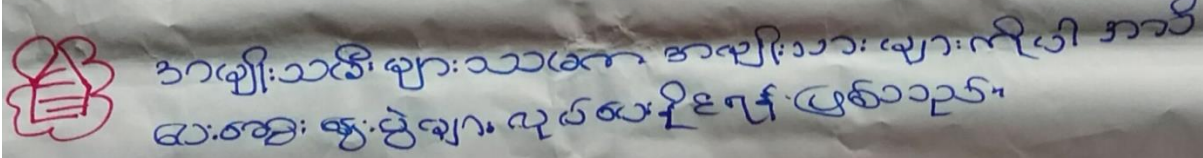 အမျိုးသမီးများသာမက အမျိုးသားများကိုပါ အသိ
ပေးဆွေးနွေးပွဲများ လုပ်ပေးနိုင်ရန် ဖြစ်သည်။